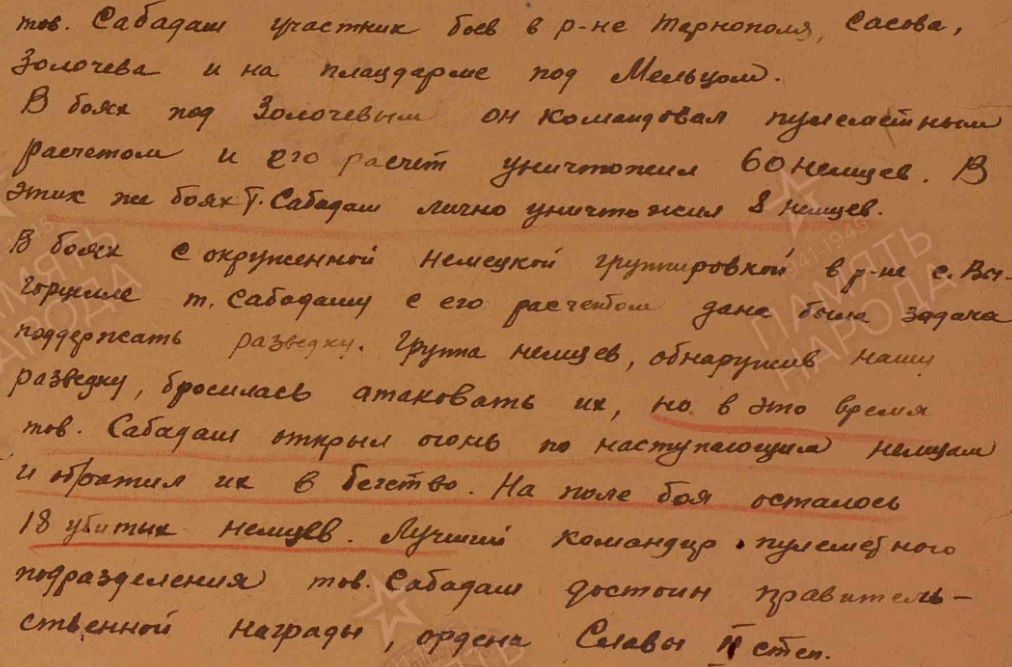 тов. Сабадаш участник боев в р-не Тернополя, Сасова,
Золочева и на плацдарме под Мельцом.
В боях под Золочевым он командовал пулеметным
расчетом и его расчет уничтожил 60 немцев. В
этих же боях т. Сабадаш лично уничтожил 8 немцев.
В боях с окруженной немецкой группировкой в р-не с. Вы-
горцелле т. Сабадашу с его расчетом дана была задача
поддержать разведку. Группа немцев, обнаружив нашу
разведку, бросилась атаковать их, но в это время
тов. Сабадаш открыл огонь по наступающим немцам
и обратил их в бегство. На поле боя осталось
18 убитых немцев. Лучший командир пулеметного
подразделения тов. Сабадаш достоин правитель-
ственной награды, ордена Славы II степ.
ПАМЯТЬ
НАРОДА
ПАМЯТЬ
НАРОДА